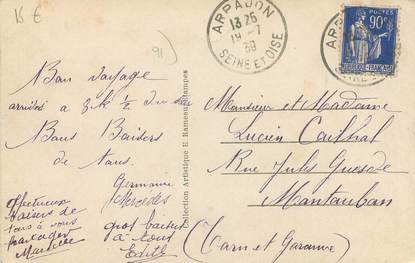 15 €
91
ARPAJON
13 26
19 - 7
39
SEINE ET OISE
POSTES
90c
Bon voyage
arrivés a 8h ½ du soir
Bons Baisers
de tous.
Germaine
Mercédès
affectueux
Baisers de
tous à vous
gros baisers
à tous
Edith
Collection Artistique E. Rameau, Etampes
Monsieur et Madame
Lucien Cailhal
Rue Jules Guesde
Montauban
(Tarn et Garonne)